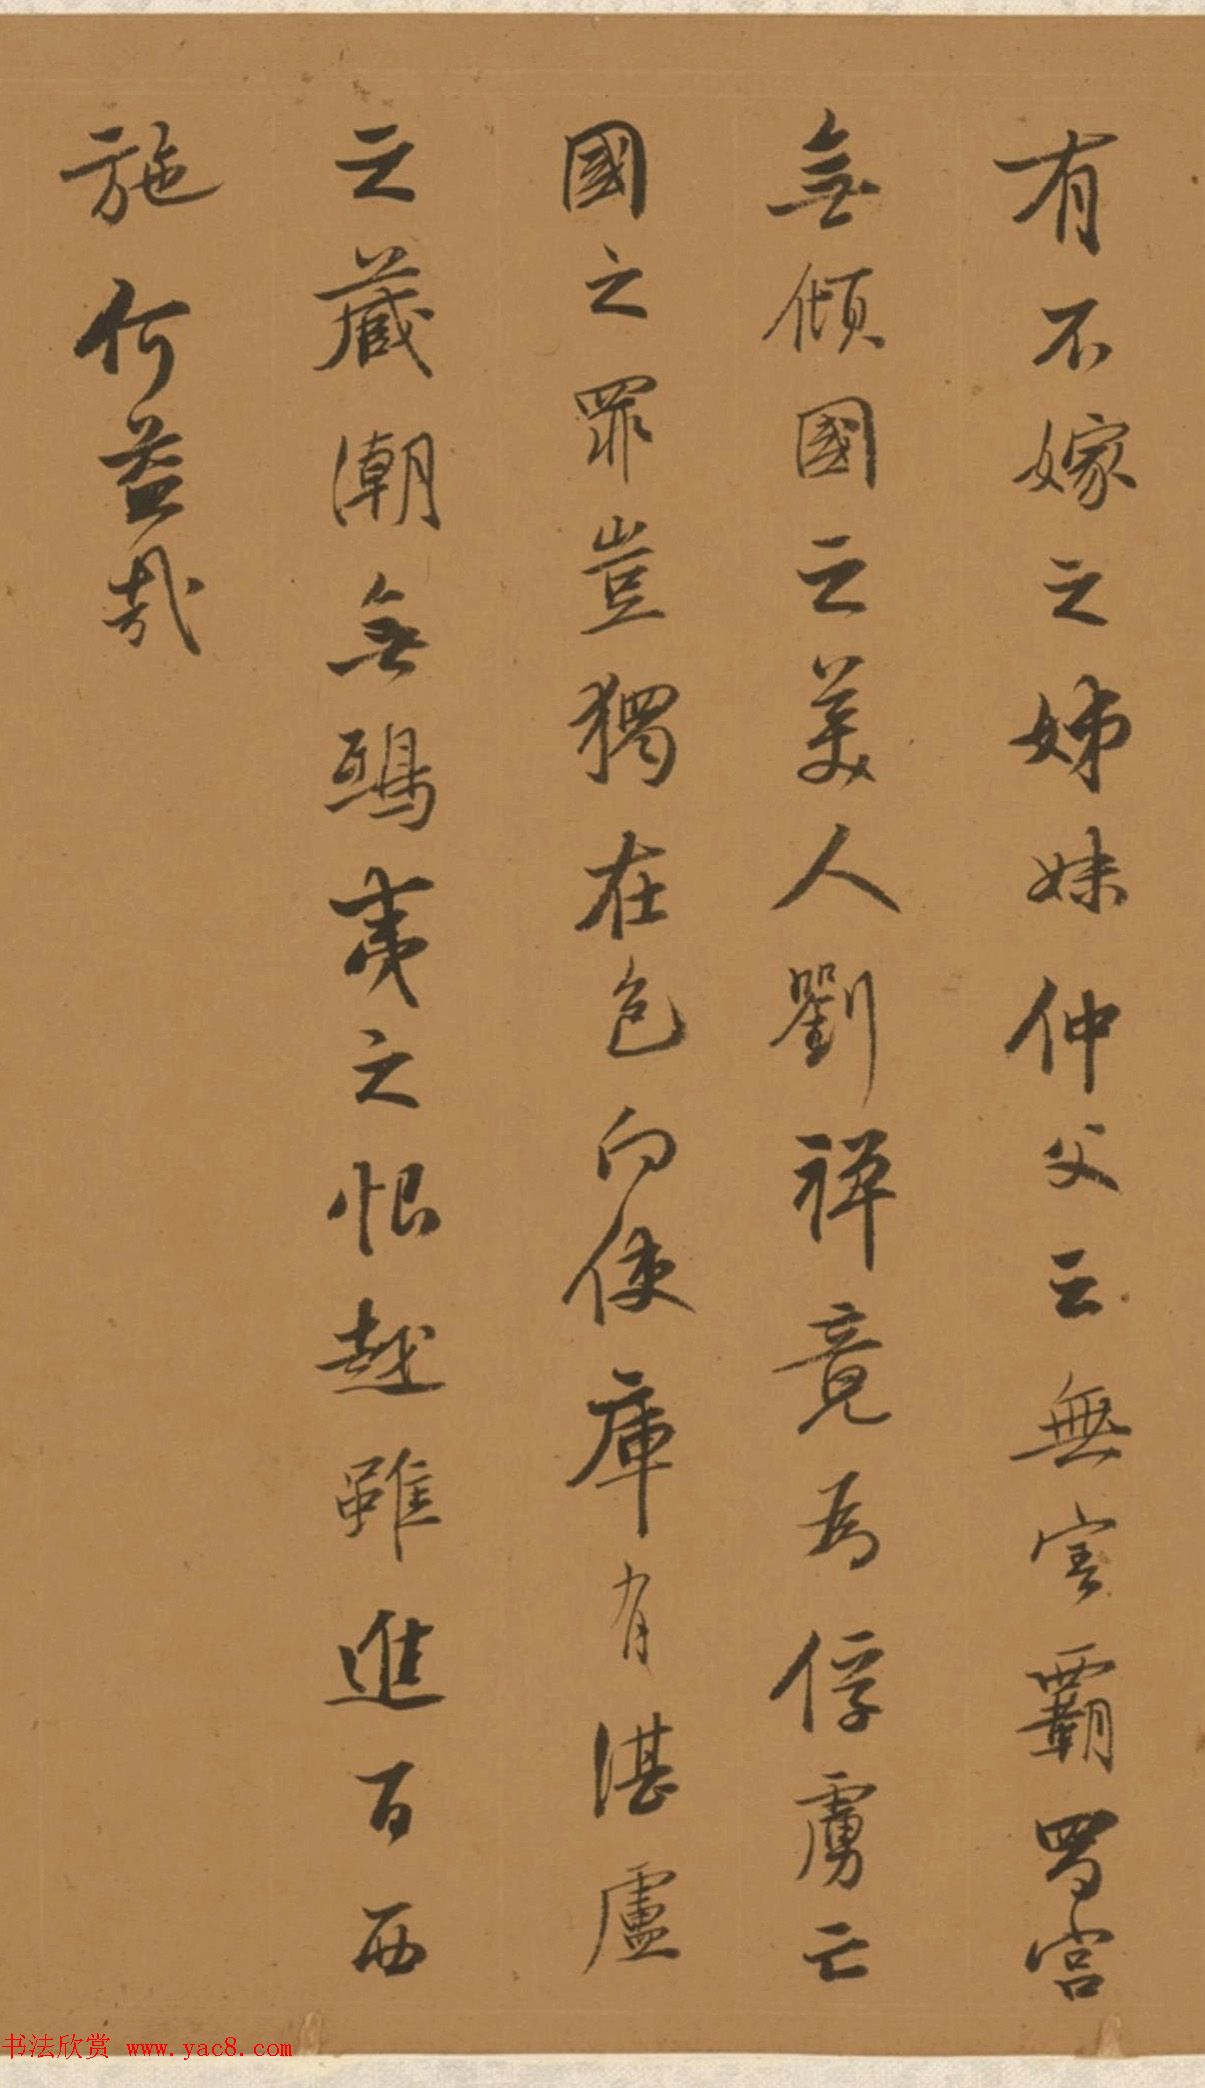 有不嫁之姊妹仲父云無害霸蜀宮
無傾國之美人劉禪竟為俘虜亡
國之罪豈獨在色向使庫有湛盧
之藏潮無鴟夷之恨越雖進百西
施何益哉
书法欣赏 www.yac8.com